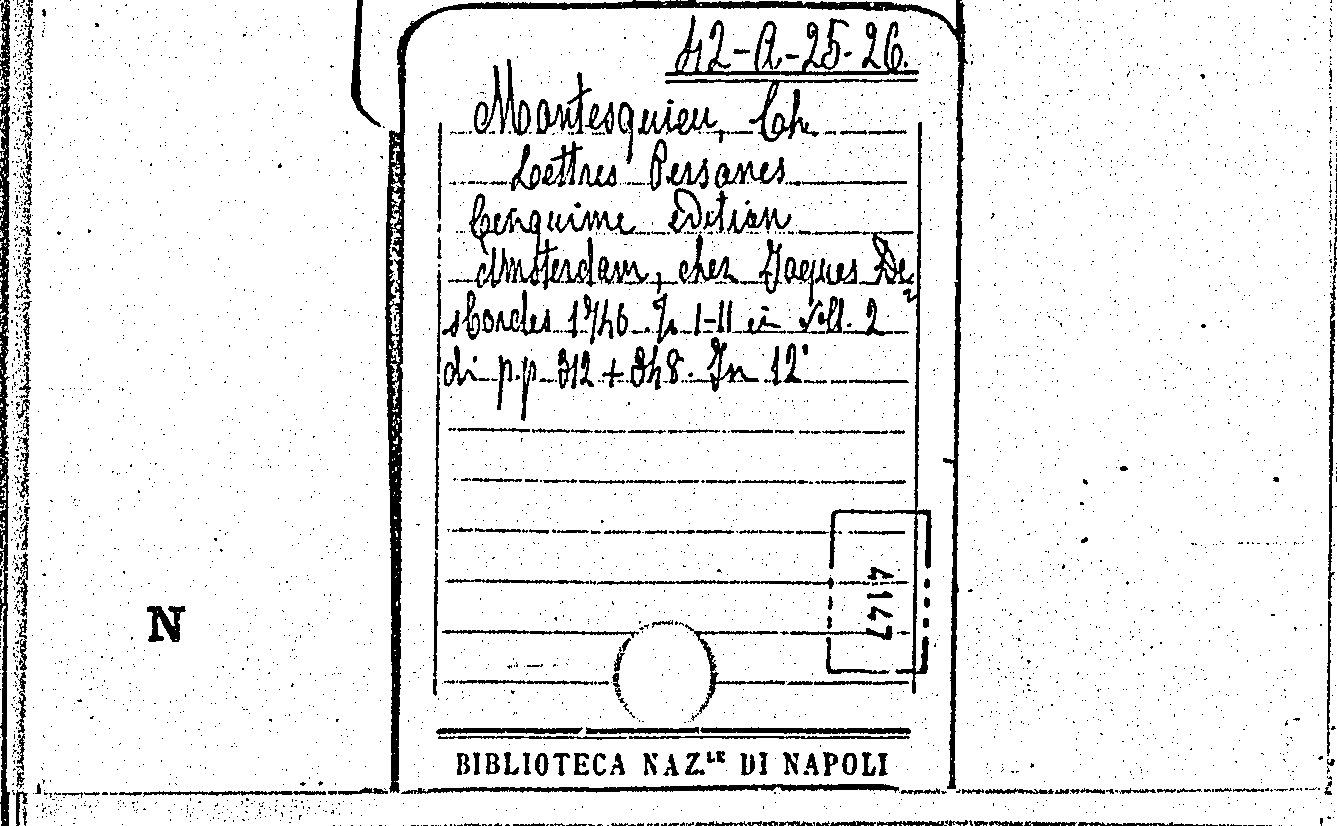 42-A-25-26.
Montesquieu, Ch.
Lettres Persanes
Cenquime edition
Amsterdam, chez Jaques De
sbordes 1746. T. I-II in Vll. 2
di pp. 312 + 348. In 12°
4147
N
BIBLIOTECA NAZ.LE DI NAPOLI